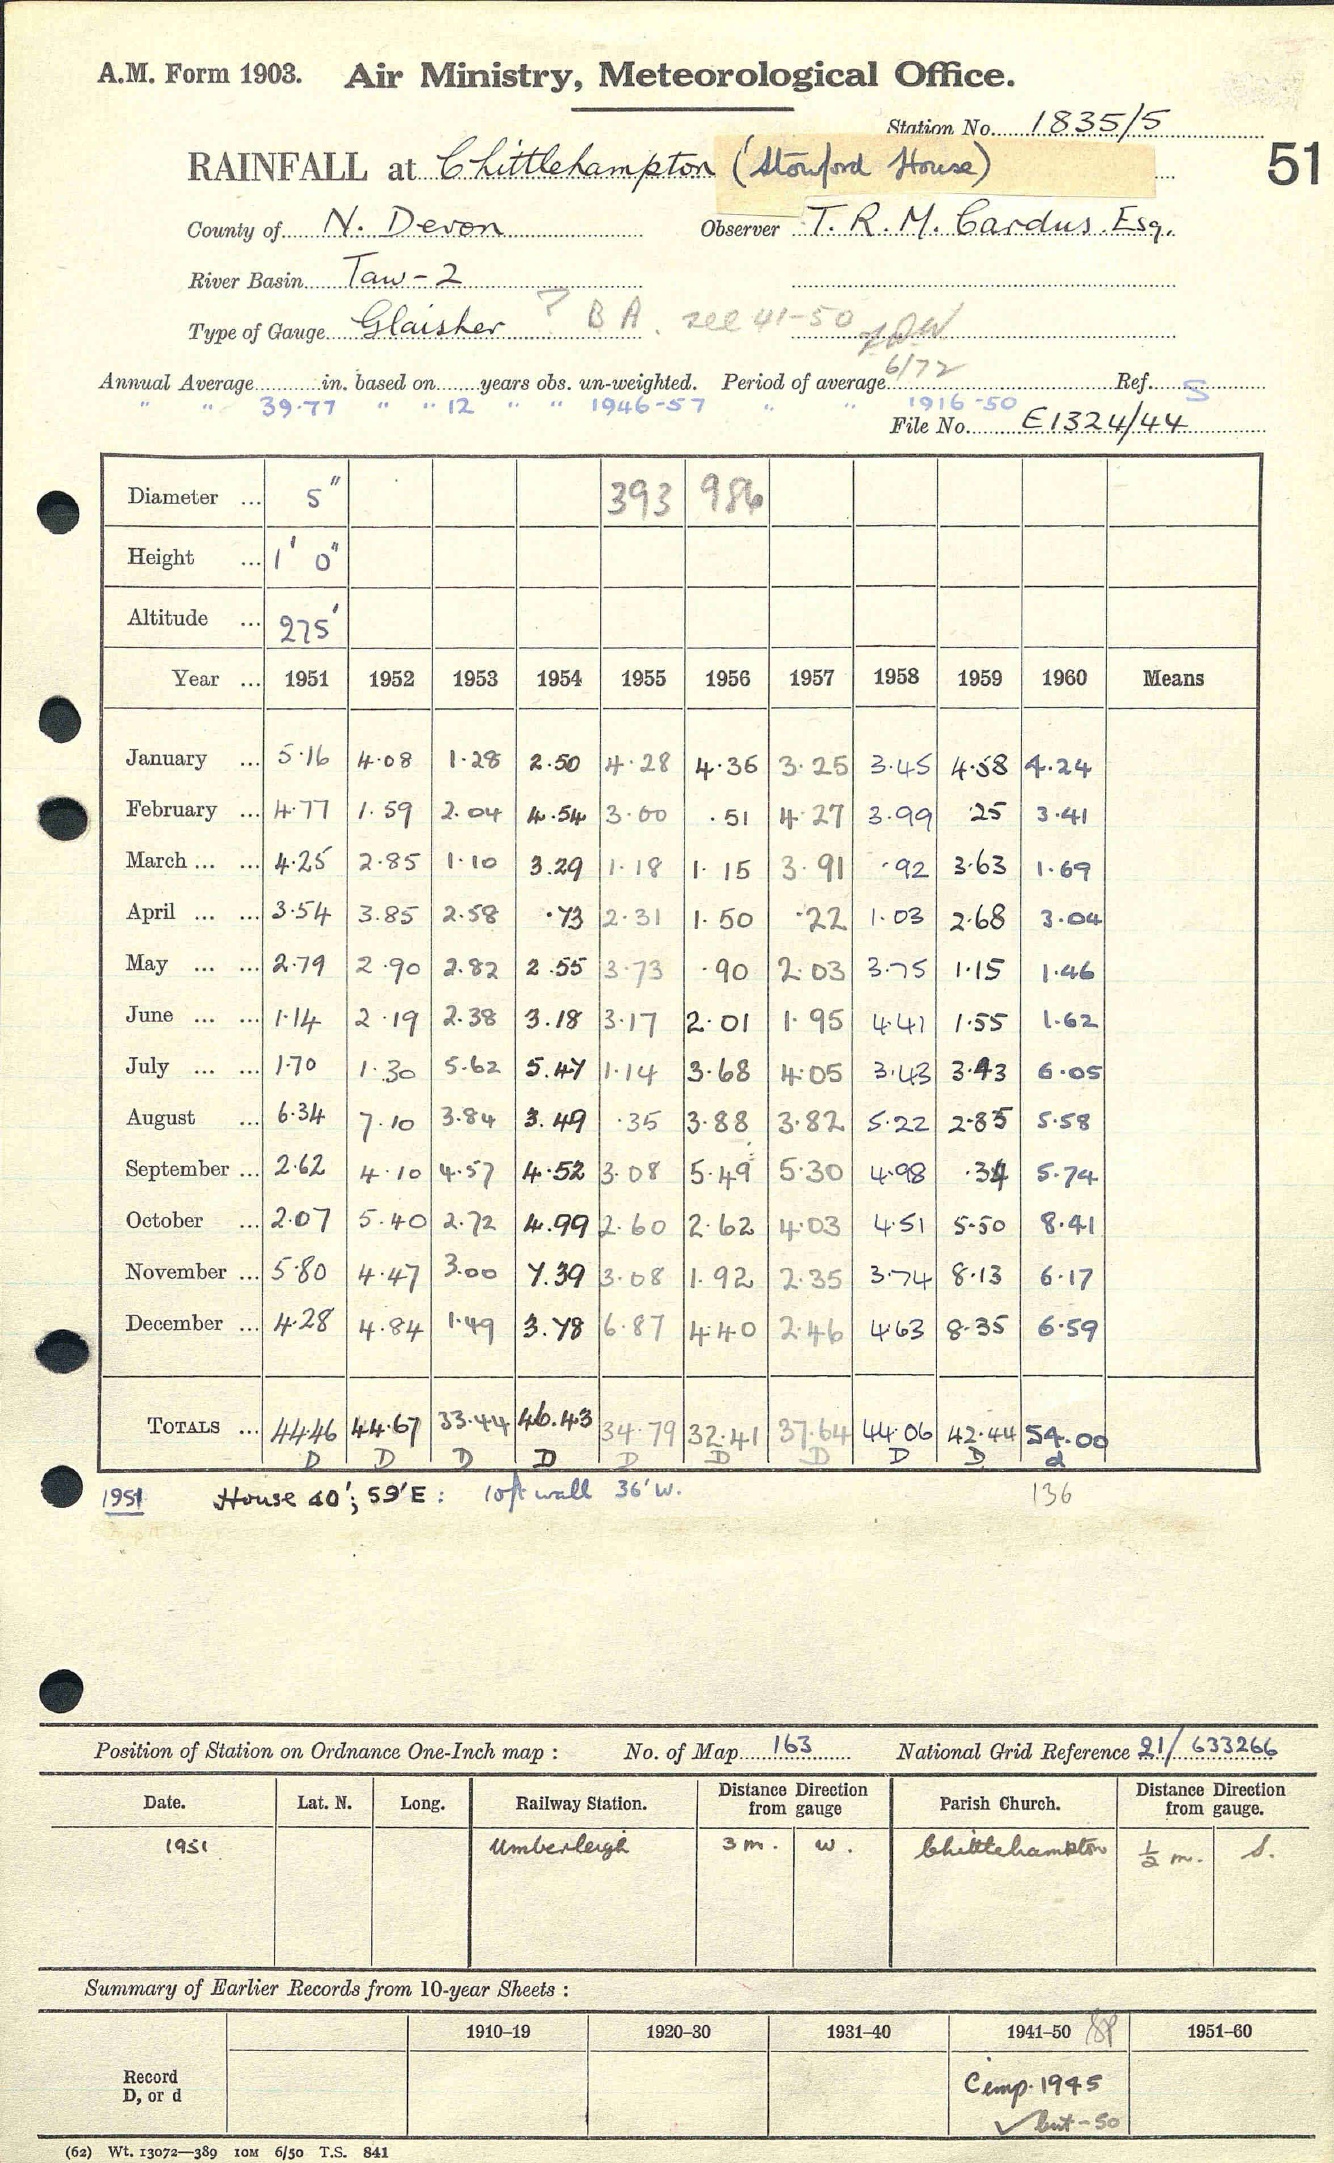 A.M. Form 1903. Air Ministry, Meteorological Office.
Station No. 1835/5
RAINFALL at Chittlehampton (Stowford House)
51
County of N. Devon Observer T. R. M. Cardus. Esq.
River Basin Taw-2
Type of Gauge Glaisher ? B A. see 41-50
6/72
Annual Average in. based on years obs. un-weighted. Period of average Ref. S
" " 39.77 " " 12 " " 1946-57 " " 1916-50
File No. E1324/44
Diameter ... 5" 393 986
Height ... 1' 0"
Altitude ... 275'
Year ... 1951 1952 1953 1954 1955 1956 1957 1958 1959 1960 Means
January ... 5.16 4.08 1.28 2.50 4.28 4.36 3.25 3.45 4.58 4.24
February ... 4.77 1.59 2.04 4.54 3.00 .51 4.27 3.99 25 3.41
March ... ... 4.25 2.85 1.10 3.29 1.18 1.15 3.91 .92 3.63 1.69
April ... ... 3.54 3.85 2.58 .73 2.31 1.50 .22 1.03 2.68 3.04
May ... ... 2.79 2.90 2.82 2.55 3.73 .90 2.03 3.75 1.15 1.46
June ... ... 1.14 2.19 2.38 3.18 3.17 2.01 1.95 4.41 1.55 1.62
July ... ... 1.70 1.30 5.62 5.47 1.14 3.68 4.05 3.43 3.43 6.05
August ... 6.34 7.10 3.84 3.49 .35 3.88 3.82 5.22 2.85 5.58
September ... 2.62 4.10 4.57 4.52 3.08 5.49 5.30 4.98 .34 5.74
October ... 2.07 5.40 2.72 4.99 2.60 2.62 4.03 4.51 5.50 8.41
November ... 5.80 4.47 3.00 7.39 3.08 1.92 2.35 3.74 8.13 6.17
December ... 4.28 4.84 1.49 3.78 6.87 4.40 2.46 4.63 8.35 6.59
TOTALS ... 44.46 44.67 33.44 46.43 34.79 32.41 37.64 44.06 42.44 54.00
D D D D D D D D D d
1951 House 40'; 59'E : 10ft wall 36'W. 136
Position of Station on Ordnance One-Inch map : No. of Map 163 National Grid Reference 21/633266
Date. Lat. N. Long. Railway Station. Distance Direction from gauge Parish Church. Distance Direction from gauge.
1951 Umberleigh 3 m. W. Chittlehampton ½ m. S.
Summary of Earlier Records from 10-year Sheets :
1910–19 1920–30 1931–40 1941–50 1951–60
Record D, or d Cemp. 1945
✓ but -50
(62) Wt. 13072—389 10M 6/50 T.S. 841